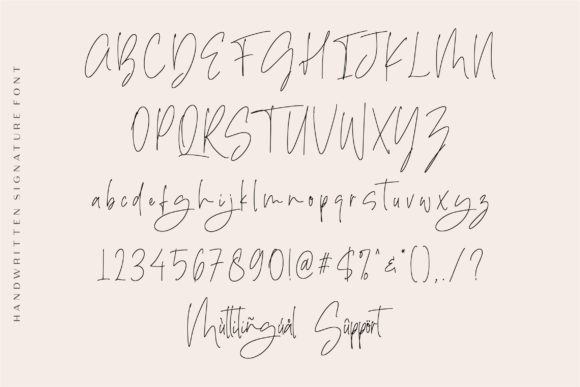 HANDWRITTEN SIGNATURE FONT
ABCDEFGHIJKLMN
OPQRSTUVWXYZ
abcdefghijklmnopqrstuvwxyz
1234567890!@#$%^&*(),./?
Mùltiliñgúål Sûppört